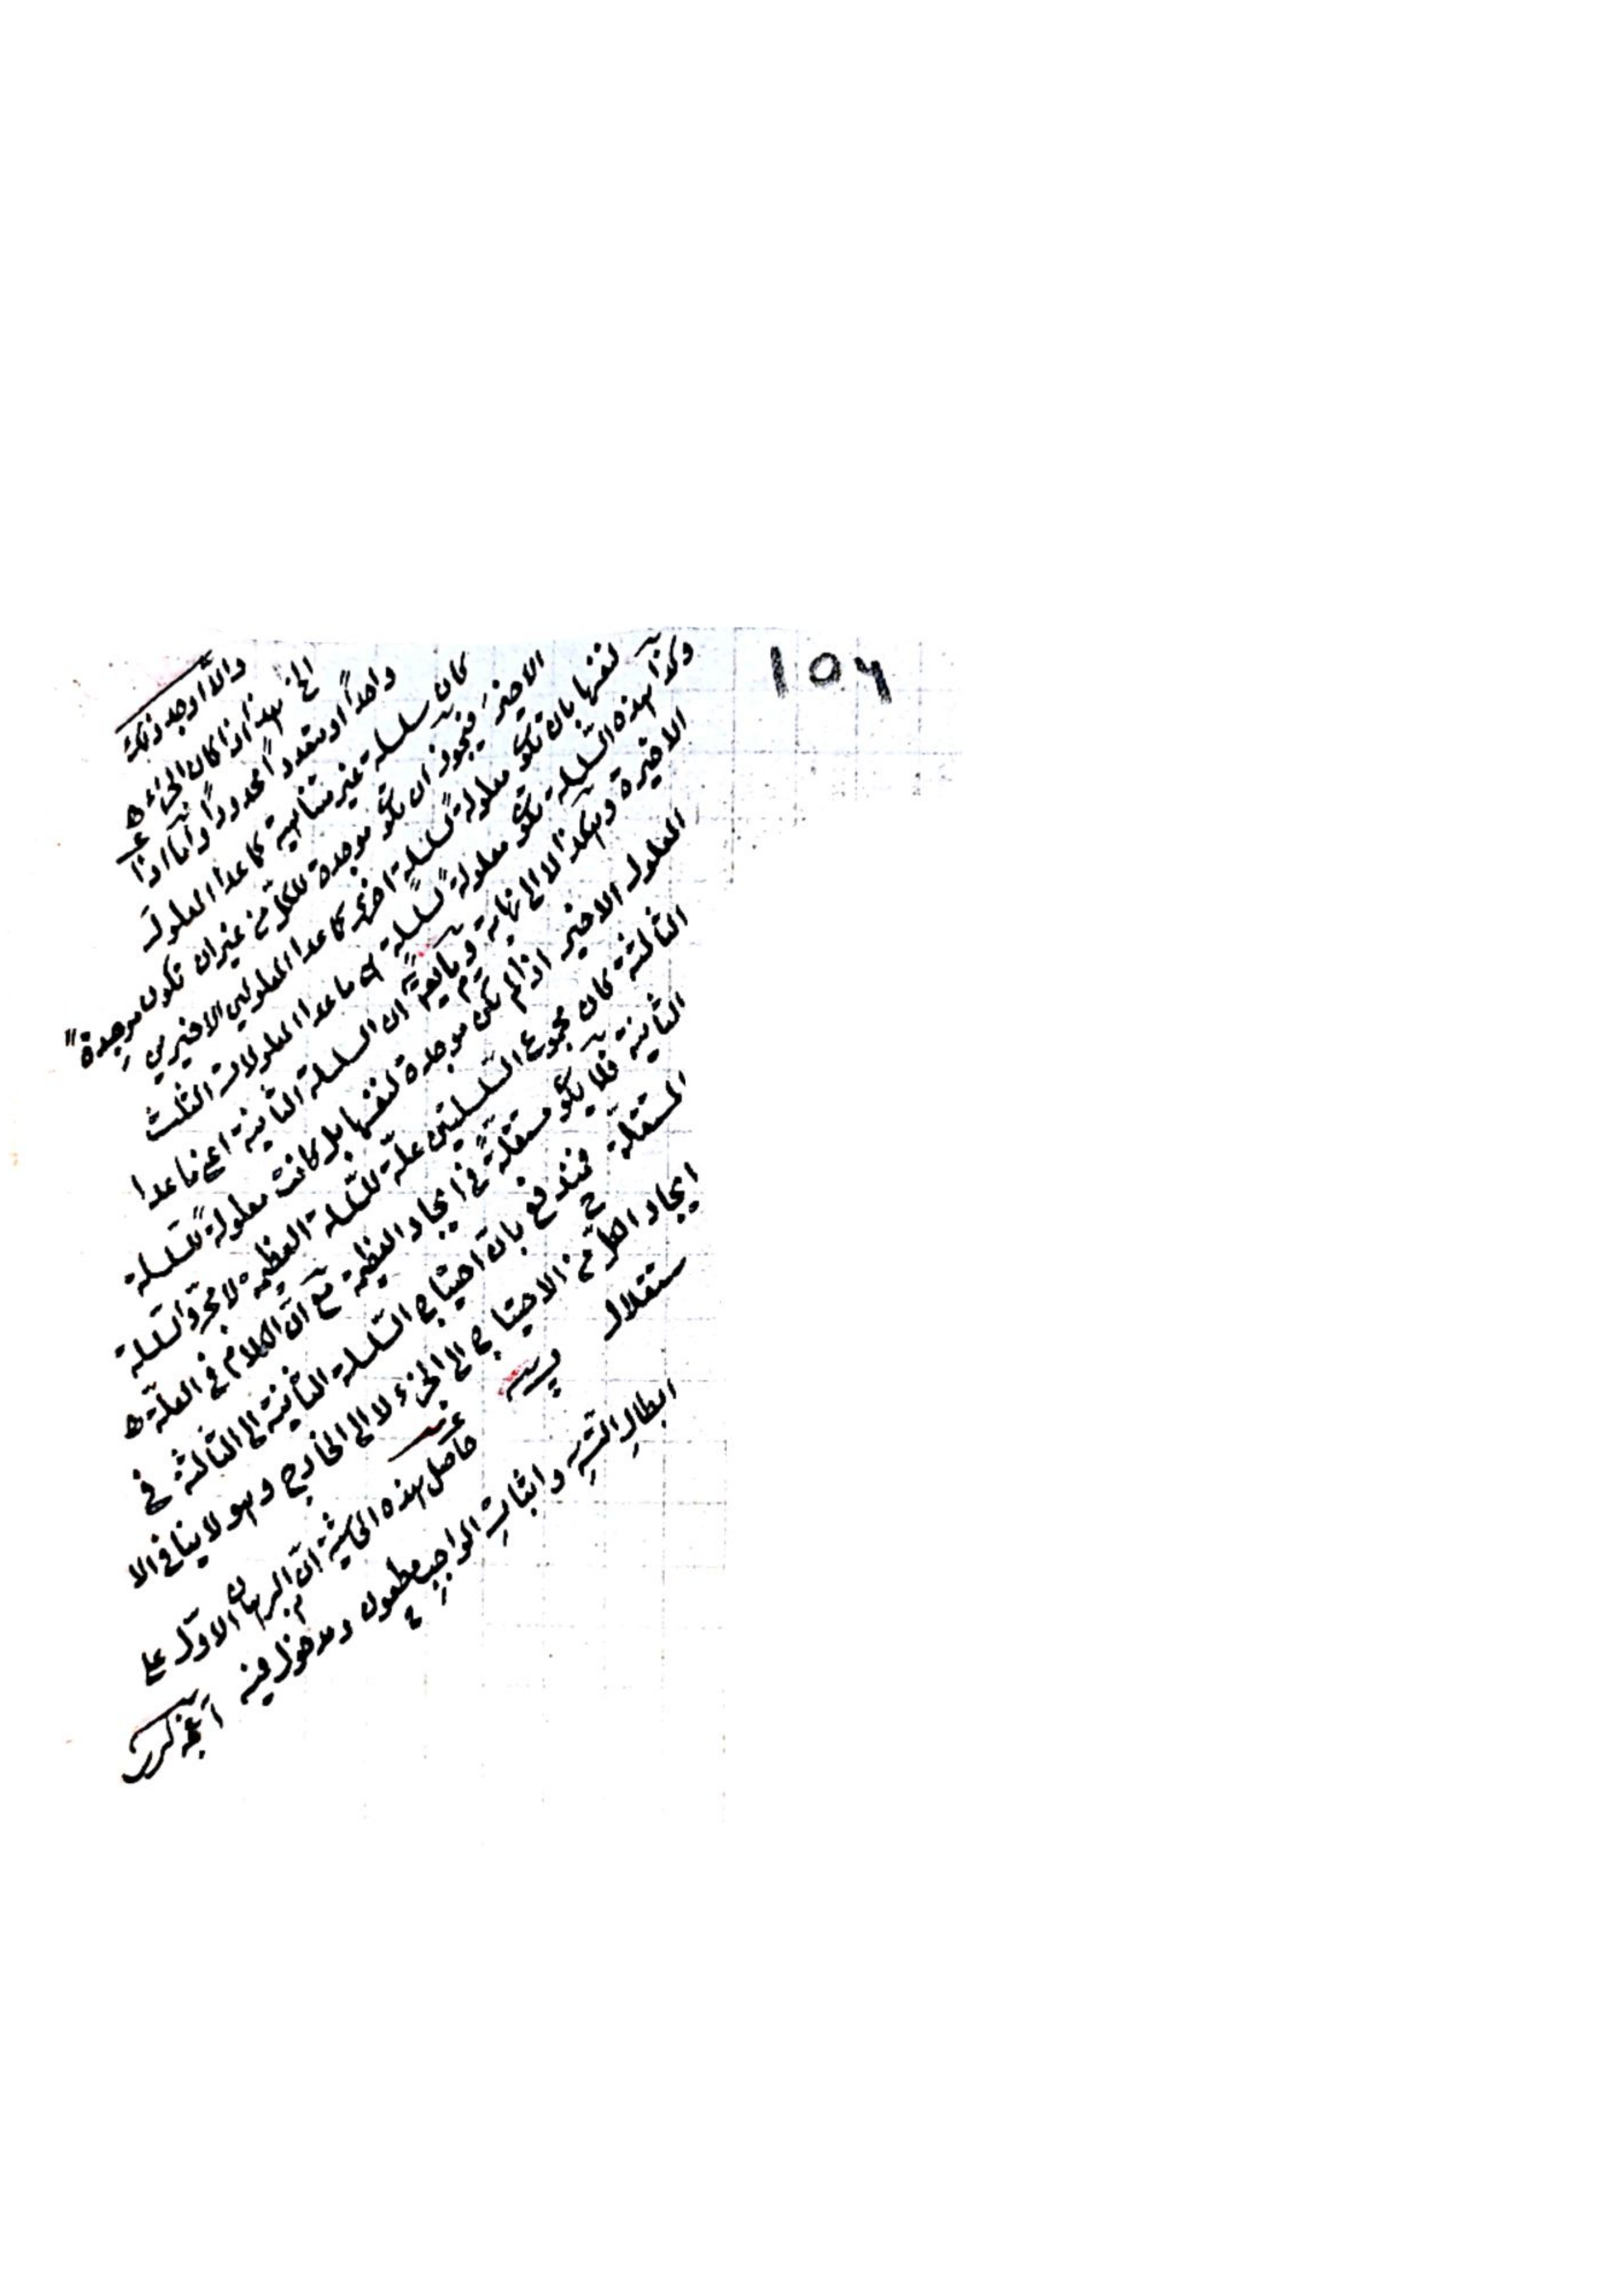 ١٥٦
والا اوجد نفسه
الخ هذا اذا كان الجزء
واحداً او متعدداً محدوداً وامّا اذا
كان سلسلة غير متناهية كما عدا المعلول
الاخير فيجوز ان تكو موجدة للكل من غير ان تكون موجدة
لنفسها بان تكو معلولة لسلسلة اخرى كما عدا المعلولين الاخيرين
وكذا هذه السلسلة تكو معلولة لسلسلة ما عدا المعلولات الثلث
الاخيرة وهكذا لا الى نهاية وما يقم ان السلسلة الثانية اعني ما عدا
المعلول الاخير اذا لم تكن موجدة لنفسها بل كانت معلولة للسلسلة
الثالثة كان مجموع السلسلتين علّة للسلسلة العظيمة لا مجرد السلسلة
الثانية فلا يكو مستقلة في ايجاد العظيمة مع انّ الكلام في العلّة
المستقلة فيندفع بانّ احتياج السلسلة الثانية الى الثالثة في
ايجاد الكل من الاحتياج الى الجزء لا الى الخارج وهو لا ينافي الا
ستقلال
حاصل هذه الحاشية انّ البرهان الاوّل على
ابطالِ التسّه واثباتِ الواجب مطعون ومدخول فيه